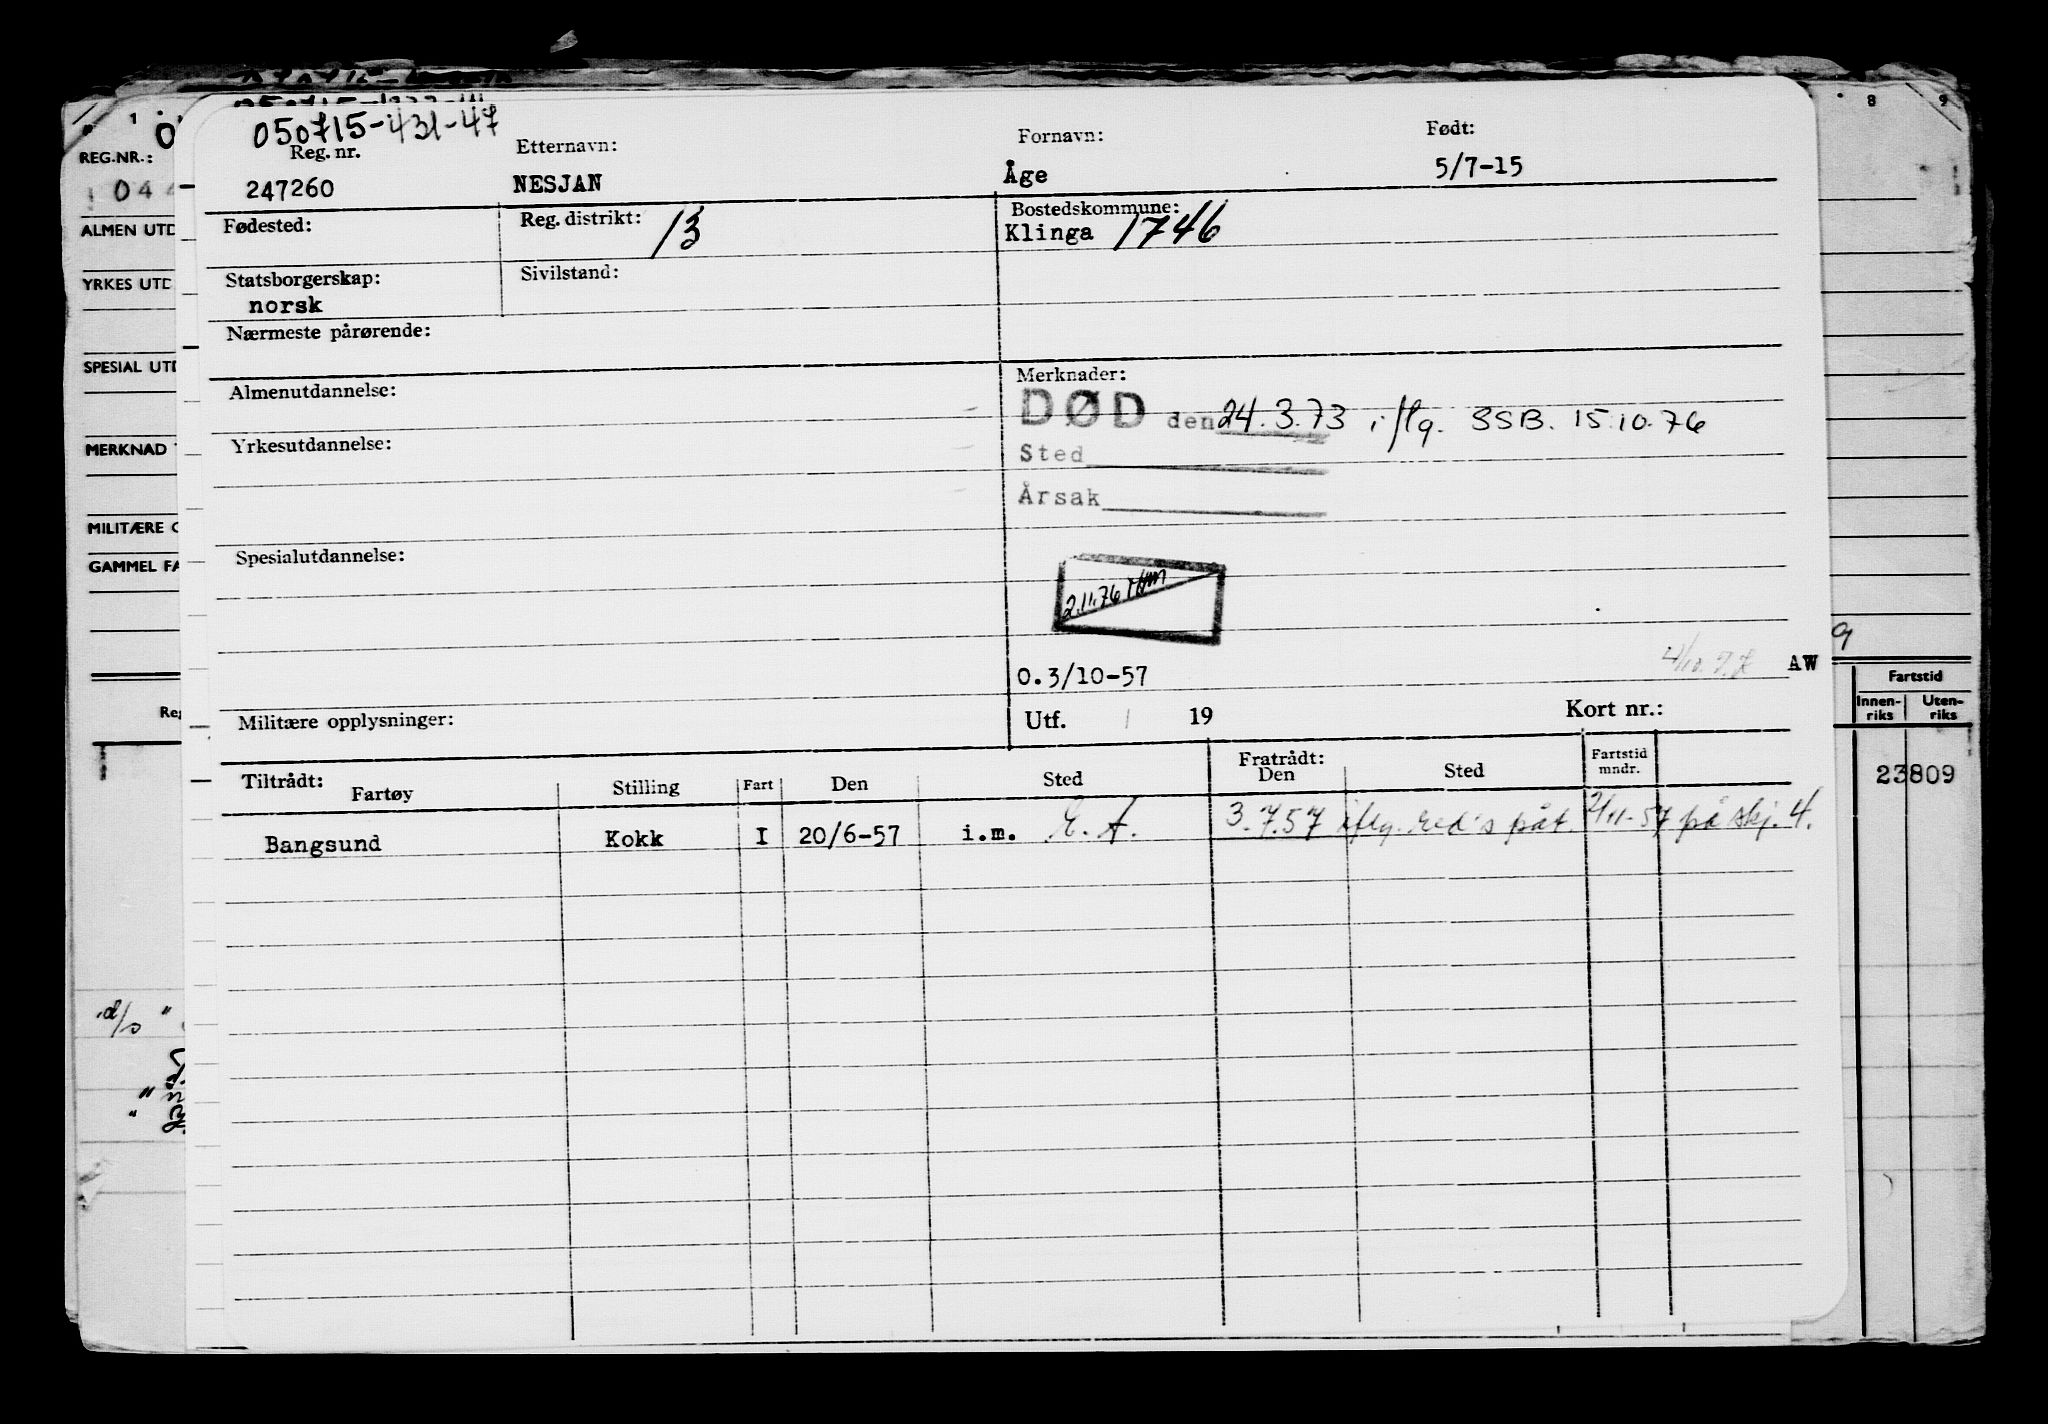 050715-431-47
Reg. nr. Etternavn: Fornavn: Født:
247260 NESJAN Åge 5/7-15
Fødested: Reg. distrikt: 13 Bostedskommune:
Klinga 1746
Statsborgerskap: Sivilstand:
norsk
Nærmeste pårørende:
Almenutdannelse: Merknader:
DØD den 24.3.73 iflg. SSB. 15.10.76
Yrkesutdannelse: Sted
Årsak
Spesialutdannelse:
2.11.76
O.3/10-57 AW
Militære opplysninger: Utf. 19 Kort nr.:
Tiltrådt: Fratrådt:
Fartøy Stilling Fart Den Sted Den Sted Fartstid mndr.
Bangsund Kokk I 20/6-57 i.m. E.A. 3.7.57 iflg. red's påt. 2/11-57 på skj. 4.
REG.NR.:
044
ALMEN UTD
YRKES UTD
SPESIAL UTD
MERKNAD
MILITÆRE O
GAMMEL FA
Reg
1
8 9
Fartstid
Innen-riks Uten-riks
23809